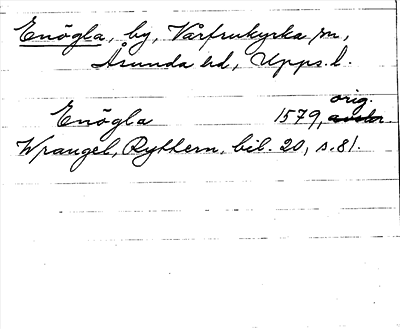 Enögla, by, Vårfrukyrka sn,
Åsunda hd, Upps. l.
orig.
Enögla 1579, avskr.
Wrangel, Ryttern, bil. 20, s. 81.